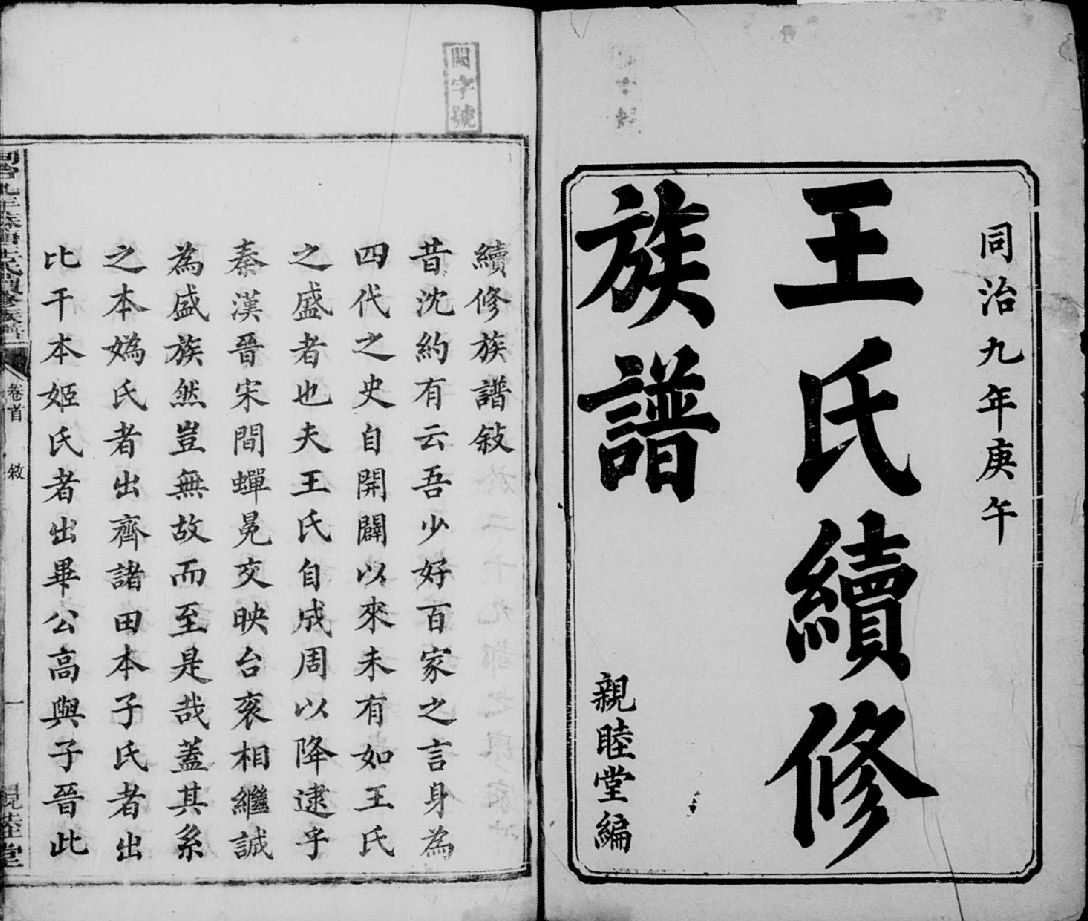 同治九年庚午
王氏續修
族譜
親睦堂編
閎字號
續修族譜敍
昔沈約有云吾少好百家之言身為
四代之史自開闢以來未有如王氏
之盛者也夫王氏自成周以降逮乎
秦漢晉宋間蟬冕交映台袞相繼誠
為盛族然豈無故而至是哉蓋其系
之本媯氏者出齊諸田本子氏者出
比干本姬氏者出畢公高與子晉此
卷首
敘
一
親睦堂